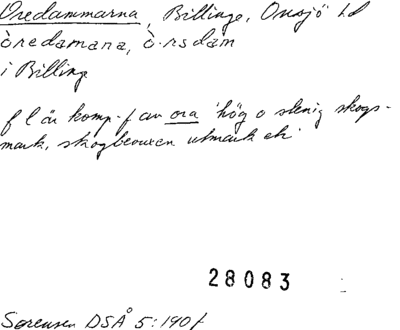 Oredammarna, Billinge, Onsjö hd
òredamana, ò·rsdam
i Billinge
f l är komp-f av ora 'hög o stenig skogs-
mark, skogbevuxen utmark etc'
28083
Sørensen DSÅ 5:190 f